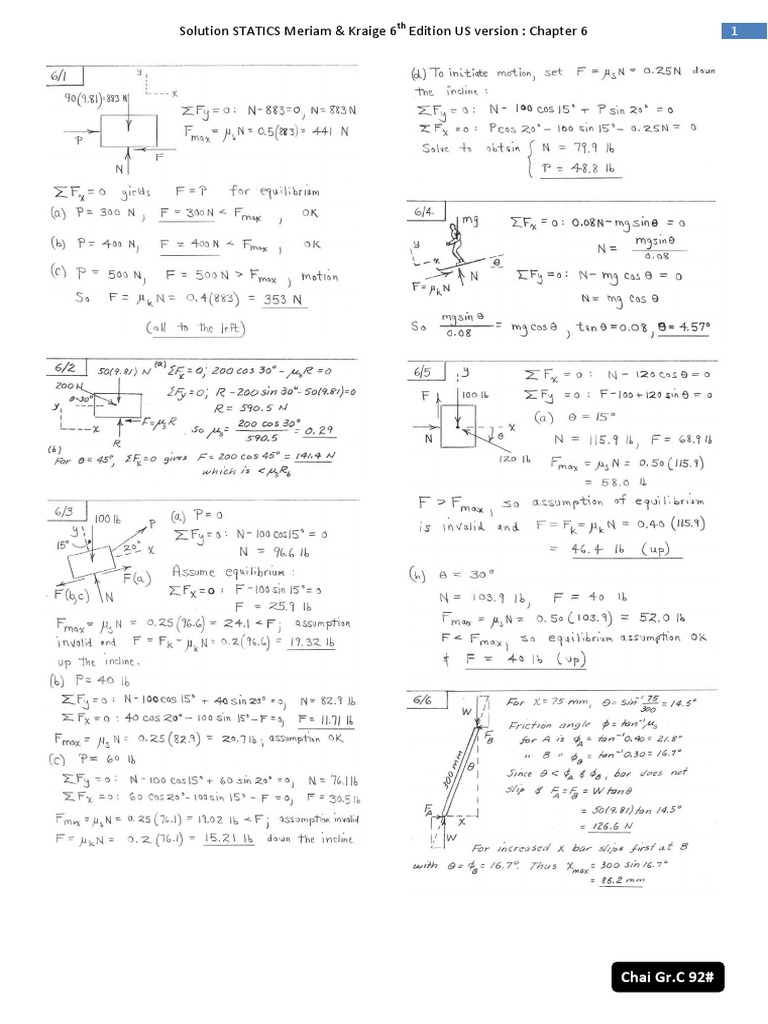 Solution STATICS Meriam & Kraige 6th Edition US version : Chapter 6
1
6/1
y
x
90(9.81)=883 N
P
F
N
ΣFy=0: N-883=0, N=883N
Fmax = μsN = 0.5(883) = 441 N
ΣFx=0 yields F=P for equilibrium
(a) P= 300 N, F = 300N < Fmax, OK
(b) P= 400 N, F = 400N < Fmax, OK
(c) P = 500 N, F = 500N > Fmax, motion
So F = μkN = 0.4(883) = 353 N
(all to the left)
6/2
50(9.81) N
200 N
θ=30°
y
x
F=μsR
R
(a) ΣFx=0; 200 cos 30° - μsR = 0
ΣFy=0; R-200 sin 30°-50(9.81)=0
R = 590.5 N
So μs = 200 cos 30° / 590.5 = 0.29
(b)
For θ=45°, ΣFx=0 gives F=200 cos 45° = 141.4 N
which is <μsRb
6/3
100 lb
y
15°
P
20°
x
F(a)
F(b,c)
N
(a) P=0
ΣFy=0: N-100 cos15° = 0
N = 96.6 lb
Assume equilibrium:
ΣFx=0: F-100 sin 15°=0
F = 25.9 lb
Fmax = μsN = 0.25(96.6) = 24.1 <F; assumption
invalid and F = Fk=μkN = 0.2(96.6) = 19.32 lb
up the incline.
(b) P= 40 lb
ΣFy=0: N-100 cos 15° + 40 sin 20° =0, N= 82.9 lb
ΣFx=0: 40 cos 20° - 100 sin 15° -F=0, F= 11.71 lb
Fmax = μsN = 0.25(82.9) = 20.7 lb; assumption OK
(c) P= 60 lb
ΣFy=0: N-100 cos15° + 60 sin 20° =0, N= 76.1 lb
ΣFx=0: 60 cos 20° -100 sin 15° - F = 0, F= 30.5 lb
Fmax = μsN = 0.25(76.1) = 19.02 lb <F; assumption invalid
F = μkN = 0.2(76.1) = 15.21 lb down the incline
(d) To initiate motion, set F = μsN = 0.25N down
the incline:
ΣFy=0: N- 100 cos 15° + P sin 20° = 0
ΣFx=0: P cos 20° -100 sin 15° - 0.25N = 0
Solve to obtain { N = 79.9 lb
P = 48.8 lb
6/4
mg
y
x
θ
F=μkN
N
ΣFx=0: 0.08N-mg sin θ = 0
N = mg sin θ / 0.08
ΣFy=0: N- mg cos θ = 0
N= mg cos θ
So mg sin θ / 0.08 = mg cos θ, tan θ = 0.08, θ = 4.57°
6/5
y
F
100 lb
N
x
θ
120 lb
ΣFx=0: N-120 cos θ = 0
ΣFy=0: F-100+120 sin θ = 0
(a) θ = 15°
N = 115.9 lb, F = 68.9 lb
Fmax = μsN = 0.50(115.9)
= 58.0 lb
F > Fmax, so assumption of equilibrium
is invalid and F = Fk=μkN = 0.40(115.9)
= 46.4 lb (up)
(b) θ = 30°
N = 103.9 lb, F = 40 lb
Fmax = μsN = 0.50(103.9) = 52.0 lb
F < Fmax, so equilibrium assumption OK
& F = 40 lb (up)
6/6
W
FB
300 mm
θ
FA
x
W
For x=75 mm, θ=sin⁻¹ 75/300 = 14.5°
Friction angle φ=tan⁻¹μs
for A is φA=tan⁻¹0.40=21.8°
" B " φB=tan⁻¹0.30=16.7°
Since θ<φA & φB, bar does not
slip & FA=FB = W tan θ
= 50(9.81) tan 14.5°
= 126.6 N
For increased x bar slips first at B
with θ=φB=16.7°. Thus xmax = 300 sin 16.7°
= 86.2 mm
Chai Gr.C 92#